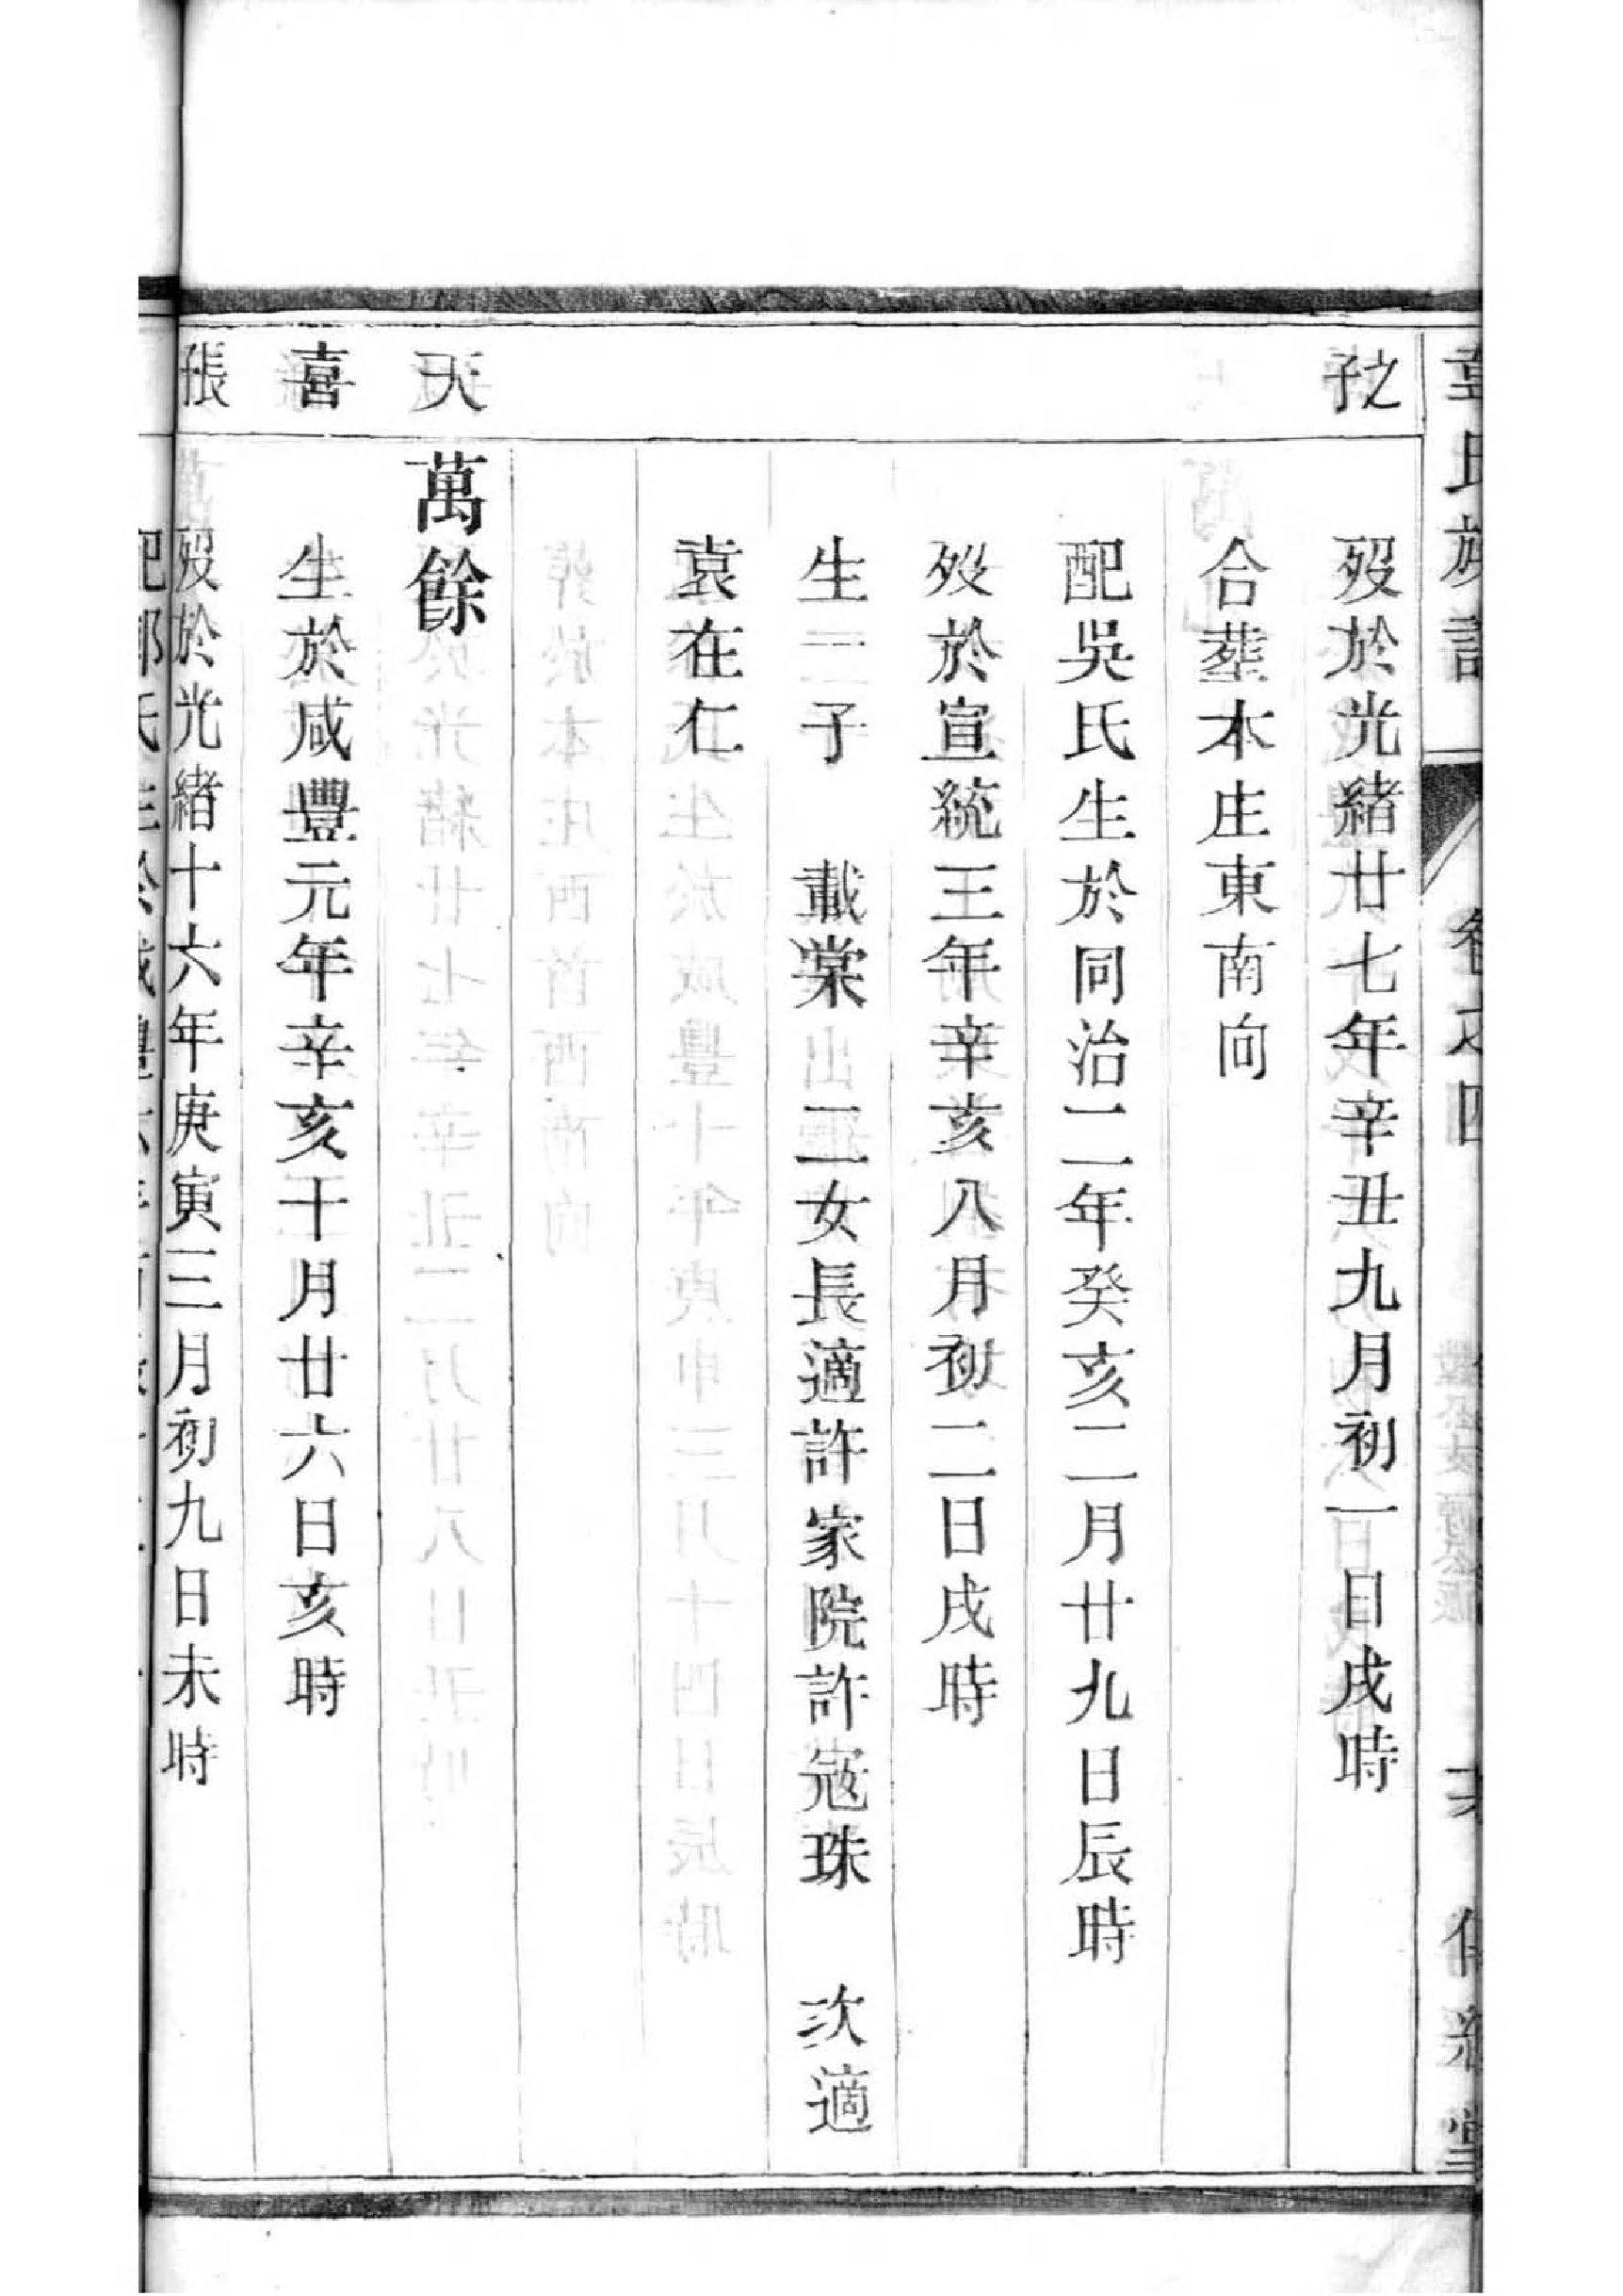 氏族譜 卷之四
之子
殁於光緒廿七年辛丑九月初一日戌時
合葬本庄東南向
配吳氏生於同治二年癸亥二月廿九日辰時
殁於宣統三年辛亥八月初二日戌時
生一子 載棠 二女長適許家院許冦珠 次適
袁在仁
天 萬餘
喜 生於咸豐元年辛亥十月廿六日亥時
張 殁於光緒十六年庚寅三月初九日未時